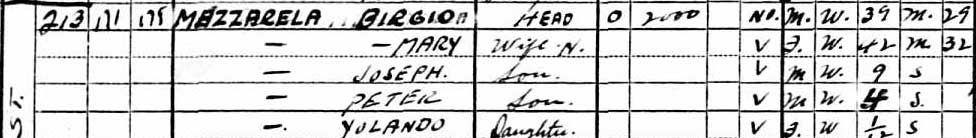 213 171 175 MEZZARELA BIRGIO HEAD O 2000 NO. M. W. 39 M. 29
— — MARY Wife-H. V F. W. 42 M 32
— JOSEPH. Son. V M W. 9 S
— PETER Son. V M W. 4 S.
— YOLANDO Daughter V F. W. S
ST.